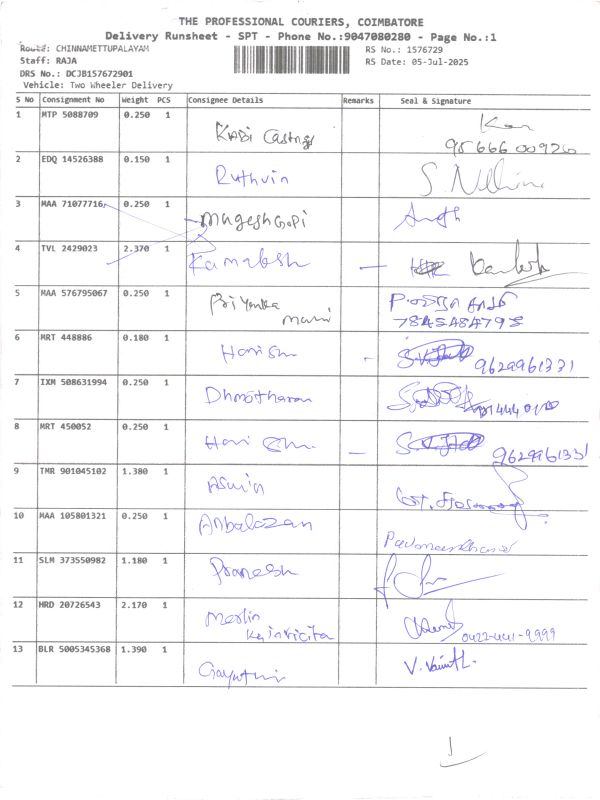 THE PROFESSIONAL COURIERS, COIMBATORE
Delivery Runsheet - SPT - Phone No.:9047080280 - Page No.:1
Route: CHINNAMETTUPALAYAM
RS No.: 1576729
Staff: RAJA
RS Date: 05-Jul-2025
DRS No.: DCJB157672901
Vehicle: Two Wheeler Delivery
S No Consignment No Weight PCS Consignee Details Remarks Seal & Signature
1 MTP 5088709 0.250 1
KABi Castings
95666 00926
2 EDQ 14526388 0.150 1
Ruthvin
3 MAA 71077716 0.250 1
MugeshGopi
4 TVL 2429023 2.370 1
Kamalesh
5 MAA 576795067 0.250 1
Priyanka
mani
7845484798
6 MRT 448886 0.180 1
Harish
9629961331
7 IXM 508631994 0.250 1
8 MRT 450052 0.250 1
Hari
9629961331
9 TMR 901045102 1.380 1
Aswin
10 MAA 105801321 0.250 1
Anbalazan
11 SLM 373550982 1.180 1
Pranesh
12 HRD 20726543 2.170 1
Merlin
0422-441-9999
13 BLR 5005345368 1.390 1
Gayathri
V.Vainth.
1